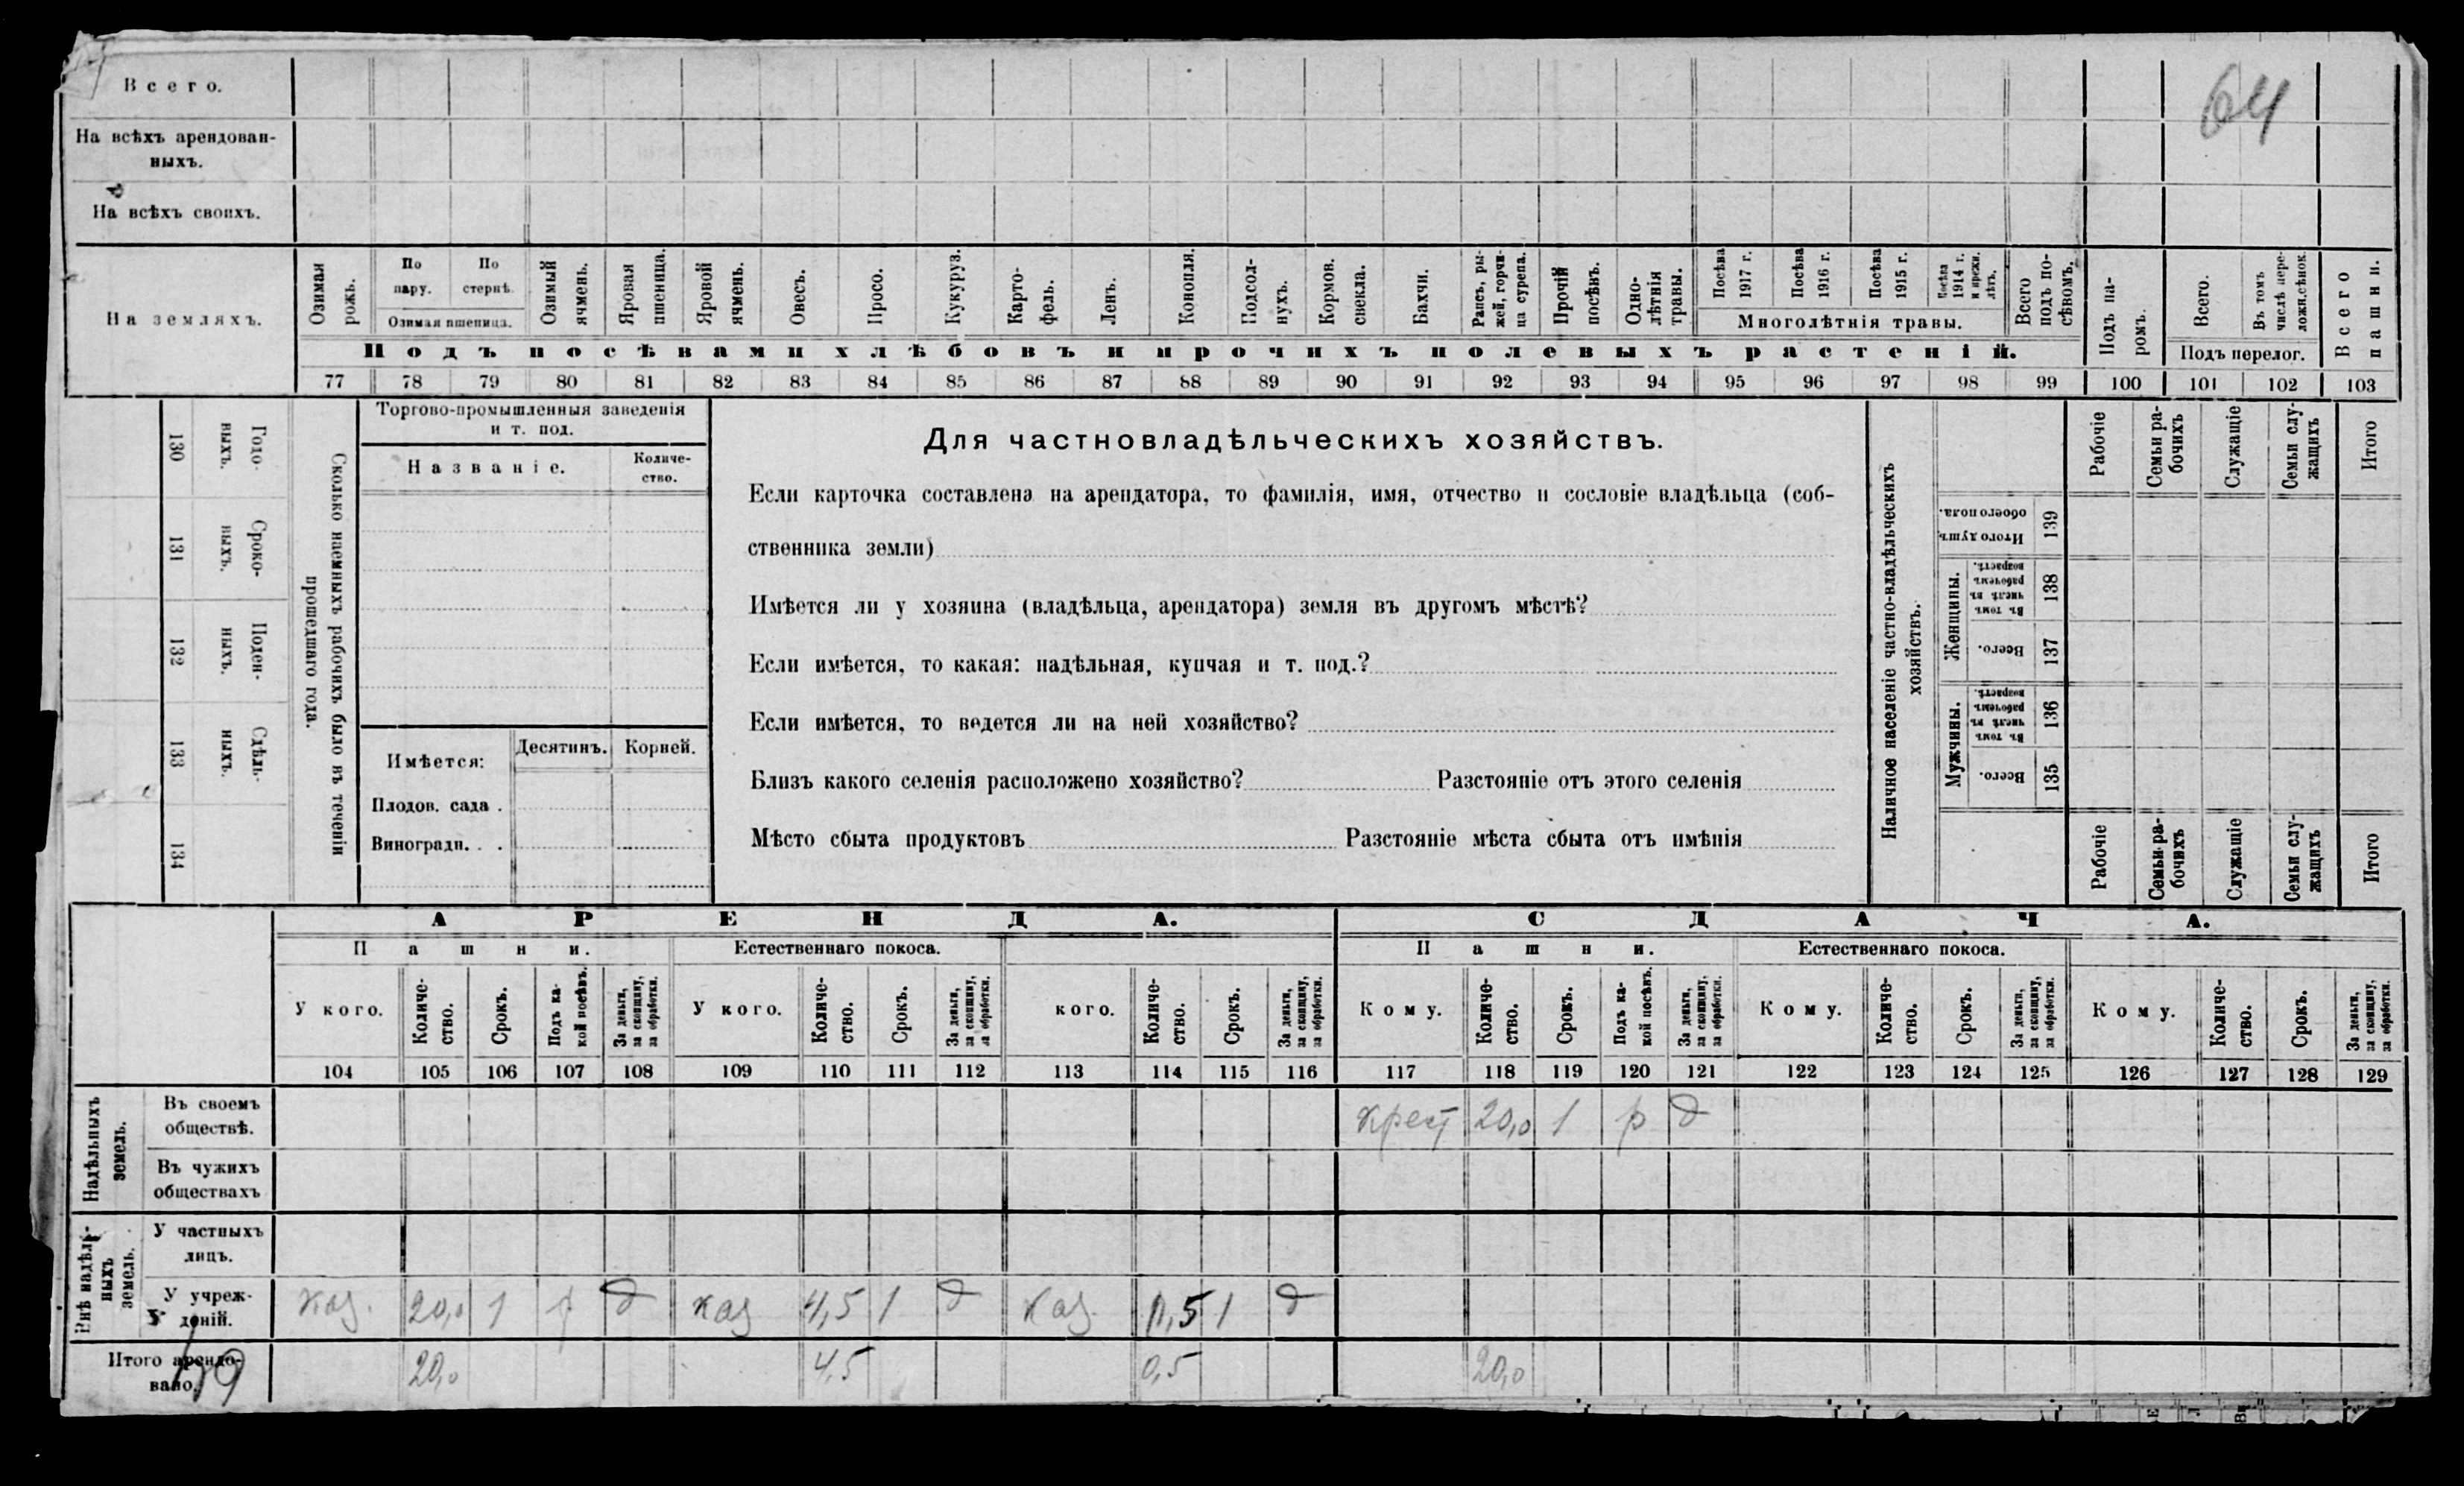 64
Всего.
На всѣхъ арендован-
ныхъ.
На всѣхъ своихъ.
На земляхъ.
Озимая рожь.
По пару.
По стернѣ.
Озимая пшеница.
Озимый ячмень.
Яровая пшеница.
Яровой ячмень.
Овесъ.
Просо.
Кукуруз.
Карто-
фель.
Ленъ.
Конопля.
Подсол-
нухъ.
Кормов. свекла.
Бахчи.
Рапсъ, ры-
жей, горчи-
ца сурепа.
Прочій посѣвъ.
Одно-
лѣтнія травы.
Посѣва 1917 г.
Посѣва 1916 г.
Посѣва 1915 г.
Посѣва 1914 г. и прежн. лѣтъ.
Многолѣтнія травы.
Всего подъ по-
сѣвомъ.
Подъ посѣвами хлѣбовъ и прочихъ полевыхъ растеній.
Подъ па-
ромъ.
Всего.
Въ томъ числѣ пере-
ложн.сѣнок.
Подъ перелог.
Всего пашни.
77 78 79 80 81 82 83 84 85 86 87 88 89 90 91 92 93 94 95 96 97 98 99 100 101 102 103
Годо-
ныхъ.
130
Сроко-
ныхъ.
131
Поден-
ныхъ.
132
Сдѣль-
ныхъ.
133
134
Сколько наемныхъ рабочихъ было въ теченіи
прошедшаго года.
Торгово-промышленныя заведенія
и т. под.
Названіе.
Количе-
ство.
Имѣется:
Десятинъ.
Корней.
Плодов. сада .
Виноградн. . .
Для частновладѣльческихъ хозяйствъ.
Если карточка составлена на арендатора, то фамилія, имя, отчество и сословіе владѣльца (соб-
ственника земли)
Имѣется ли у хозяина (владѣльца, арендатора) земля въ другомъ мѣстѣ?
Если имѣется, то какая: надѣльная, купчая и т. под.?
Если имѣется, то ведется ли на ней хозяйство?
Близъ какого селенія расположено хозяйство? Разстояніе отъ этого селенія
Мѣсто сбыта продуктовъ Разстояніе мѣста сбыта отъ имѣнія
Наличное населеніе частно-владѣльческихъ
хозяйствъ.
Рабочіе
Семьи ра-
бочихъ
Служащіе
Семьи слу-
жащихъ
Итого
Итого душъ обоего пола.
139
Женщины.
Въ томъ числѣ въ рабочемъ возрастѣ.
138
Всего.
137
Мужчины.
Въ томъ числѣ въ рабочемъ возрастѣ.
136
Всего.
135
Рабочіе
Семьи ра-
бочихъ
Служащіе
Семьи слу-
жащихъ
Итого
АРЕНДА.
СДАЧА.
Пашни.
Естественнаго покоса.
Пашни.
Естественнаго покоса.
У кого.
Количе-
ство.
Срокъ.
Подъ ка-
кой посѣвъ.
За деньги, за скопщину, за обработки.
У кого.
Количе-
ство.
Срокъ.
За деньги, за скопщину, за обработки.
кого.
Количе-
ство.
Срокъ.
За деньги, за скопщину, за обработки.
Кому.
Количе-
ство.
Срокъ.
Подъ ка-
кой посѣвъ.
За деньги, за скопщину, за обработки.
Кому.
Количе-
ство.
Срокъ.
За деньги, за скопщину, за обработки.
Кому.
Количе-
ство.
Срокъ.
За деньги, за скопщину, за обработки.
104 105 106 107 108 109 110 111 112 113 114 115 116 117 118 119 120 121 122 123 124 125 126 127 128 129
Надѣльныхъ земель.
Въ своемъ
обществѣ.
крест 20,0 1 р д
Въ чужихъ
обществахъ
Внѣ надѣль-
ныхъ земель.
У частныхъ
лицъ.
У учреж-
деній.
каз. 20,0 1 р д каз 4,5 1 д каз. 0,5 1 д
Итого арендо-
вано.
20,0 4,5 0,5 20,0